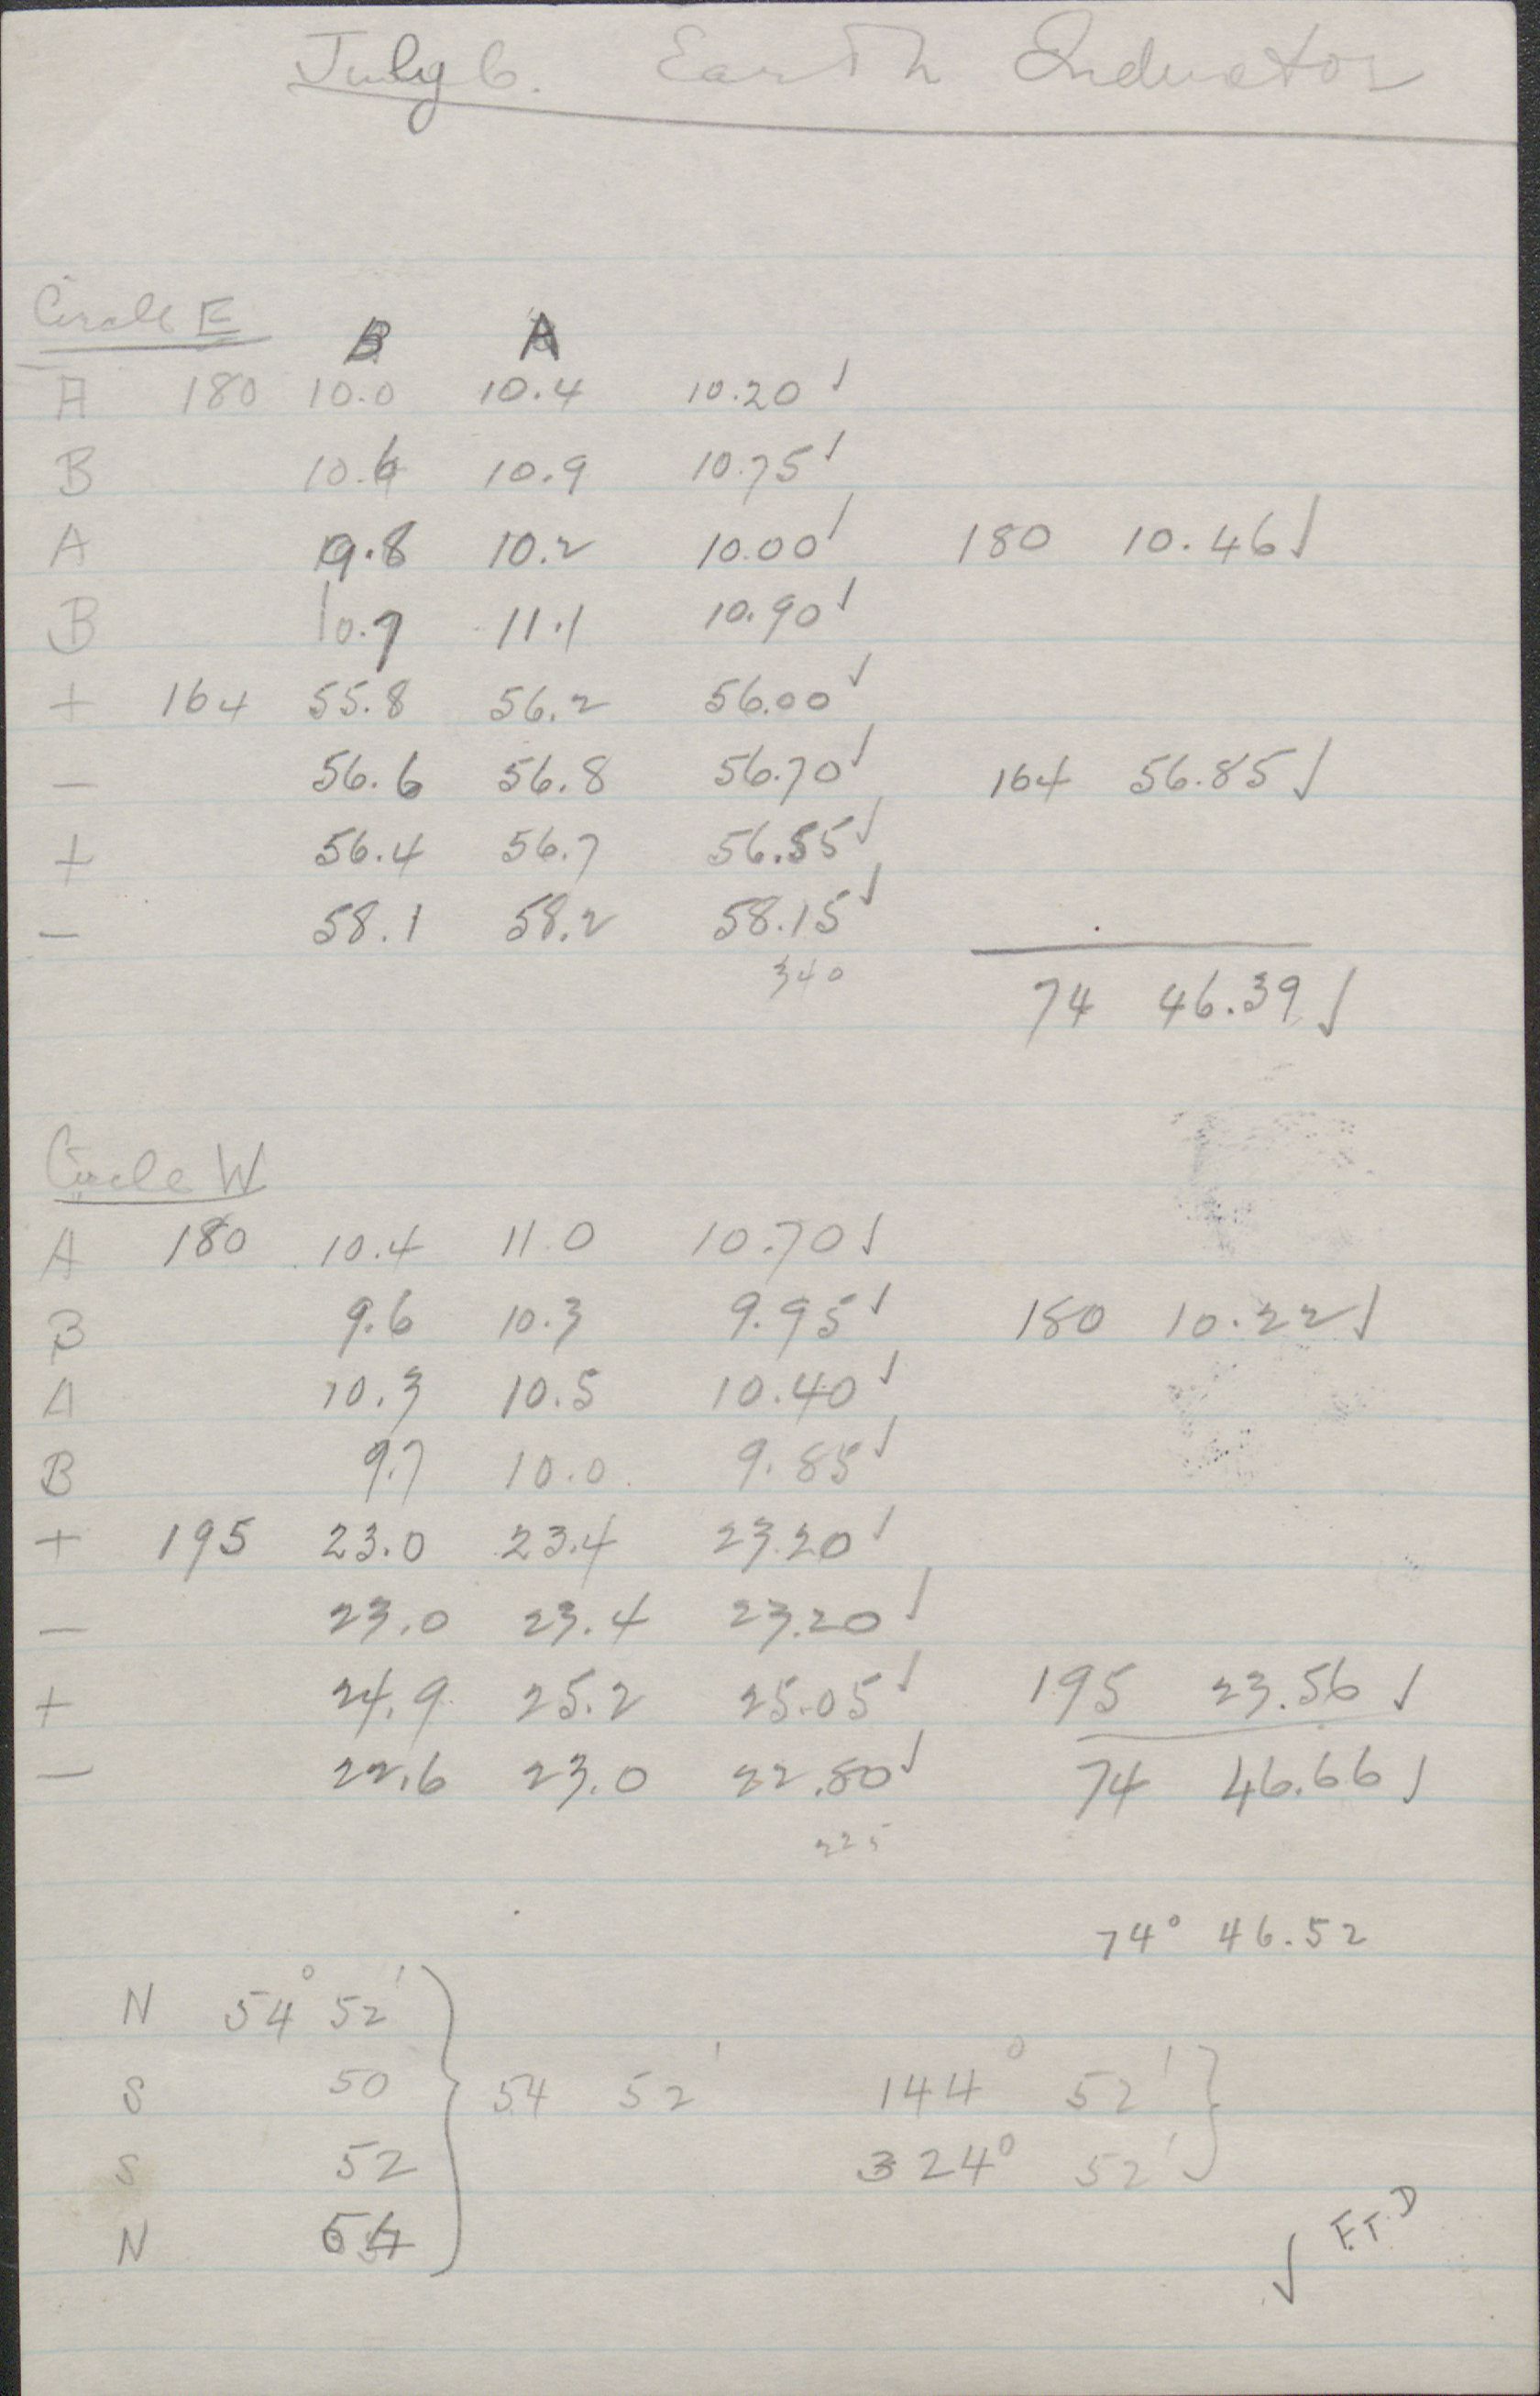 July 6. Earth Inductor
Circle E
B A
A 180 10.0 10.4 10.20 ✓
B 10.6 10.9 10.75 ✓
A 9.8 10.2 10.00 ✓ 180 10.46 ✓
B 10.7 11.1 10.90 ✓
+ 164 55.8 56.2 56.00 ✓
- 56.6 56.8 56.70 ✓ 164 56.85 ✓
+ 56.4 56.7 56.55 ✓
- 58.1 58.2 58.15 ✓
340
74 46.39 ✓
Circle W
A 180 10.4 11.0 10.70 ✓
B 9.6 10.3 9.95 ✓ 180 10.22 ✓
A 10.3 10.5 10.40 ✓
B 9.7 10.0 9.85 ✓
+ 195 23.0 23.4 23.20 ✓
- 23.0 23.4 23.20 ✓
+ 24.9 25.2 25.05 ✓ 195 23.56 ✓
- 22.6 23.0 22.80 ✓ 74 46.66 ✓
225
74° 46.52
N 54° 52'
S 50 54 52' 144° 52'
S 52 324° 52'
N 54
✓ F.T.D